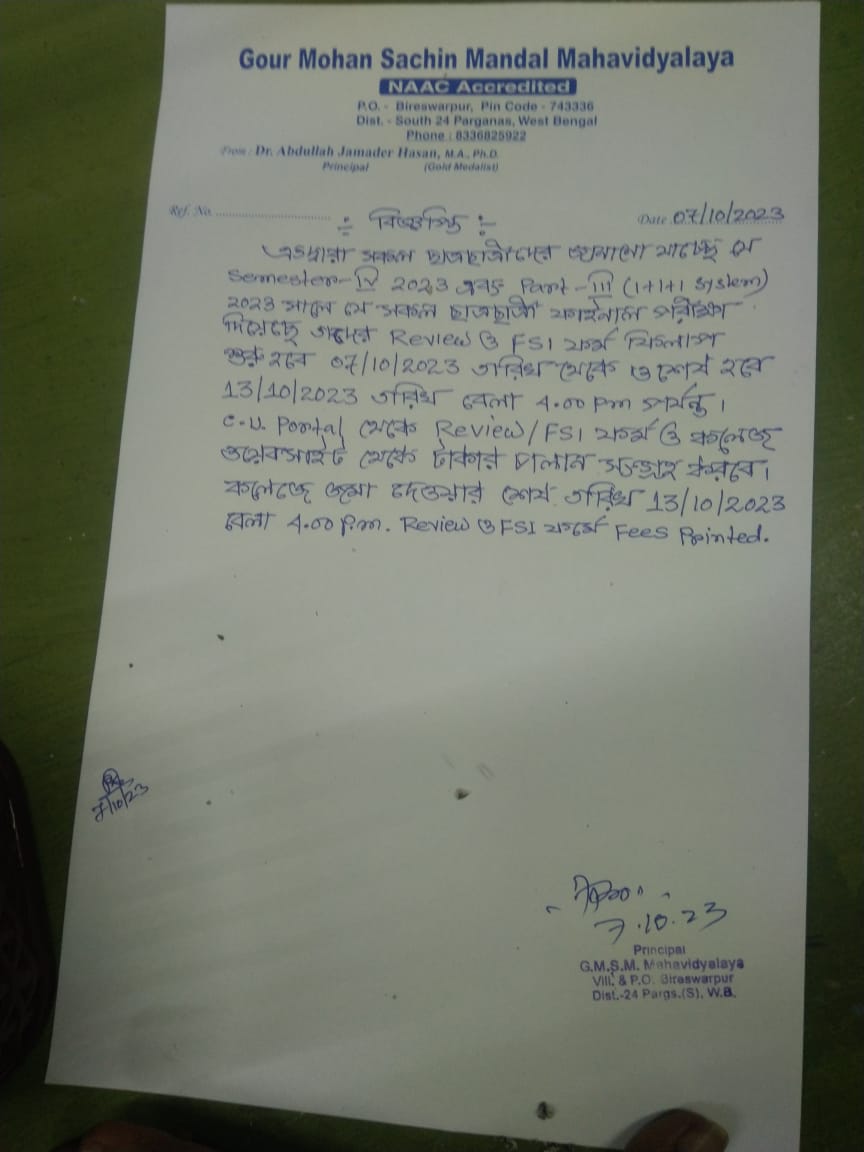 Gour Mohan Sachin Mandal Mahavidyalaya
NAAC Accredited
P.O. - Bireswarpur, Pin Code - 743336
Dist. - South 24 Parganas, West Bengal
Phone : 8336825922
From : Dr. Abdullah Jamader Hasan, M.A., Ph.D.
Principal (Gold Medalist)
Ref. No. Date 07/10/2023
-: বিজ্ঞপ্তি :-
এতদ্বারা সকল ছাত্রছাত্রীদের জানানো যাচ্ছে যে
Semester-IV 2023 এবং Part-III (1+1+1 System)
2023 সালে যে সকল ছাত্রছাত্রী ফাইনাল পরীক্ষা
দিয়েছে তাদের Review ও FSI ফর্ম ফিলাপ
শুরু হবে 07/10/2023 তারিখ থেকে ও শেষ হবে
13/10/2023 তারিখ বেলা 4.00 Pm পর্যন্ত।
C.U. Portal থেকে Review/FSI ফর্ম ও কলেজ
ওয়েবসাইট থেকে টাকার চালান সংগ্রহ করবে।
কলেজে জমা দেওয়ার শেষ তারিখ 13/10/2023
বেলা 4.00 P.m. Review ও FSI ফর্মে Fees Printed.
7/10/23
7.10.23
Principal
G.M.S.M. Mahavidyalaya
Vill. & P.O. Bireswarpur
Dist.-24 Pargs.(S), W.B.